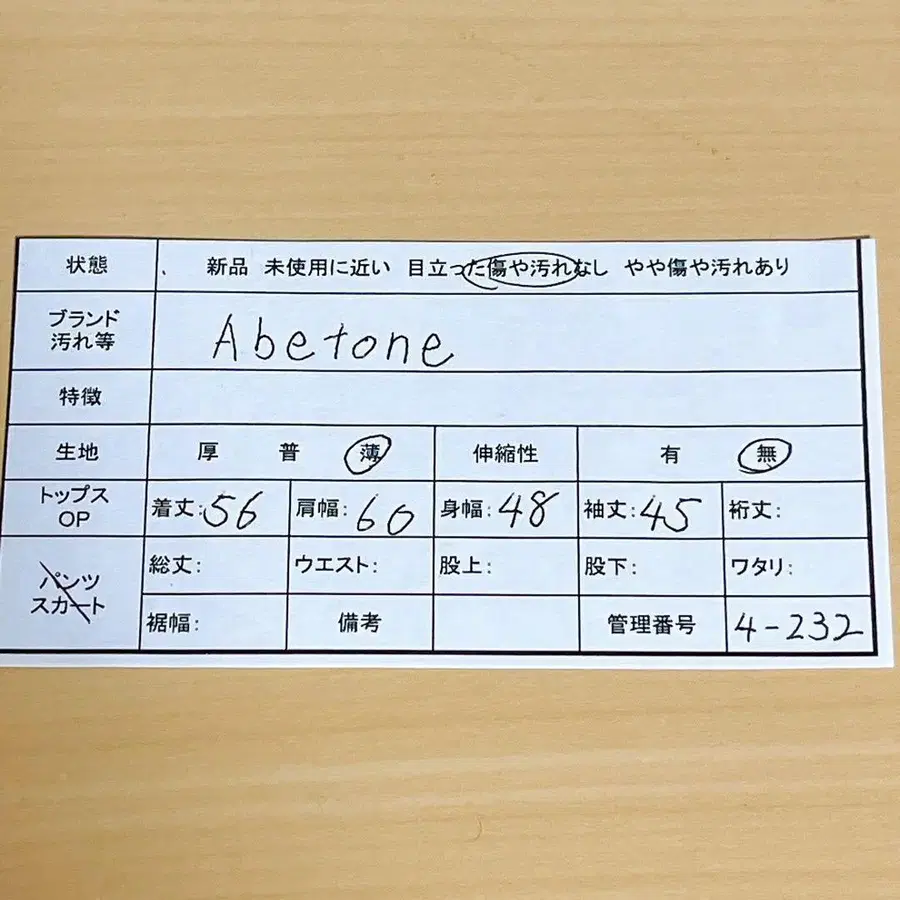 状態 、 新品 未使用に近い 目立った傷や汚れなし やや傷や汚れあり
ブランド
汚れ等
Abetone
特徴
生地 厚 普 薄 伸縮性 有 無
トップス
OP
着丈:56 肩幅:60 身幅:48 袖丈:45 裄丈:
パンツ
スカート
総丈: ウエスト: 股上: 股下: ワタリ:
裾幅: 備考 管理番号 4-232